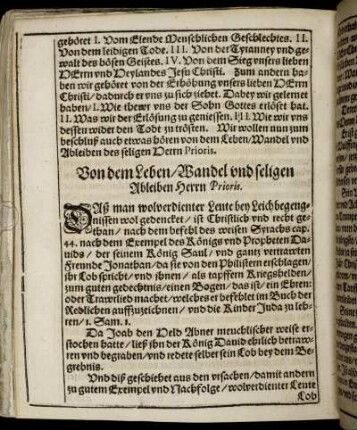 gehöret I. Vom Elende Menschlichen Geschlechtes. II.
Von dem leidigen Tode. III. Von der Tyranney vnd ge-
walt des bösen Geistes. IV. Von dem Sieg vnsers lieben
HErrn vnd Heylandes Jesu Christi. Zum andern ha-
ben wir gehöret von der Erhöhung vnsers lieben HErrn
Christi/ dadurch er vns zu sich ziehet. Dabey wir gelernet
haben/ I. Wie thewr vns der Sohn Gottes erlöset hat.
II. Was wir der Erlösung zu geniessen. III. Wie wir vns
dessen wider den Tod zu trösten. Wir wollen nun zum
beschluß auch etwas hören von dem Leben/ Wandel vnd
Ableiben des seligen Herrn Prioris.
Von dem Leben/ Wandel vnd seligen
Ableiben Herrn Prioris.
Daß man wolverdienter Leute bey Leichbegeng-
nissen wol gedencket/ ist Christlich vnd recht ge-
than/ nach dem befehl des weisen Syrachs cap.
44. nach dem Exempel des Königs vnd Propheten Da-
uids/ der seinem König Saul/ vnd gantz vertrawten
Freunde Jonathan/ da sie von den Philistern erschlagen/
ihr Lob spricht/ vnd ihnen/ als tapffern Kriegshelden/
zum guten gedechtnis/ einen Bogen/ das ist/ ein Ehren
oder Trawrlied machet/ welches er befehlet im Buch der
Redlichen auffzuzeichnen/ vnd die Kinder Juda zu leh-
ren/ 2. Sam. 1.
Da Joab den Held Abner meuchlischer weise er-
stochen hatte/ ließ ihn der König Dauid ehrlich betraw-
ren vnd begraben/ vnd redete selber sein Lob bey dem Be-
grebnis.
Vnd diß geschiehet aus den vrsachen/ damit andern
zu gutem Exempel vnd Nachfolge/ wolverdienter Leute
Lob